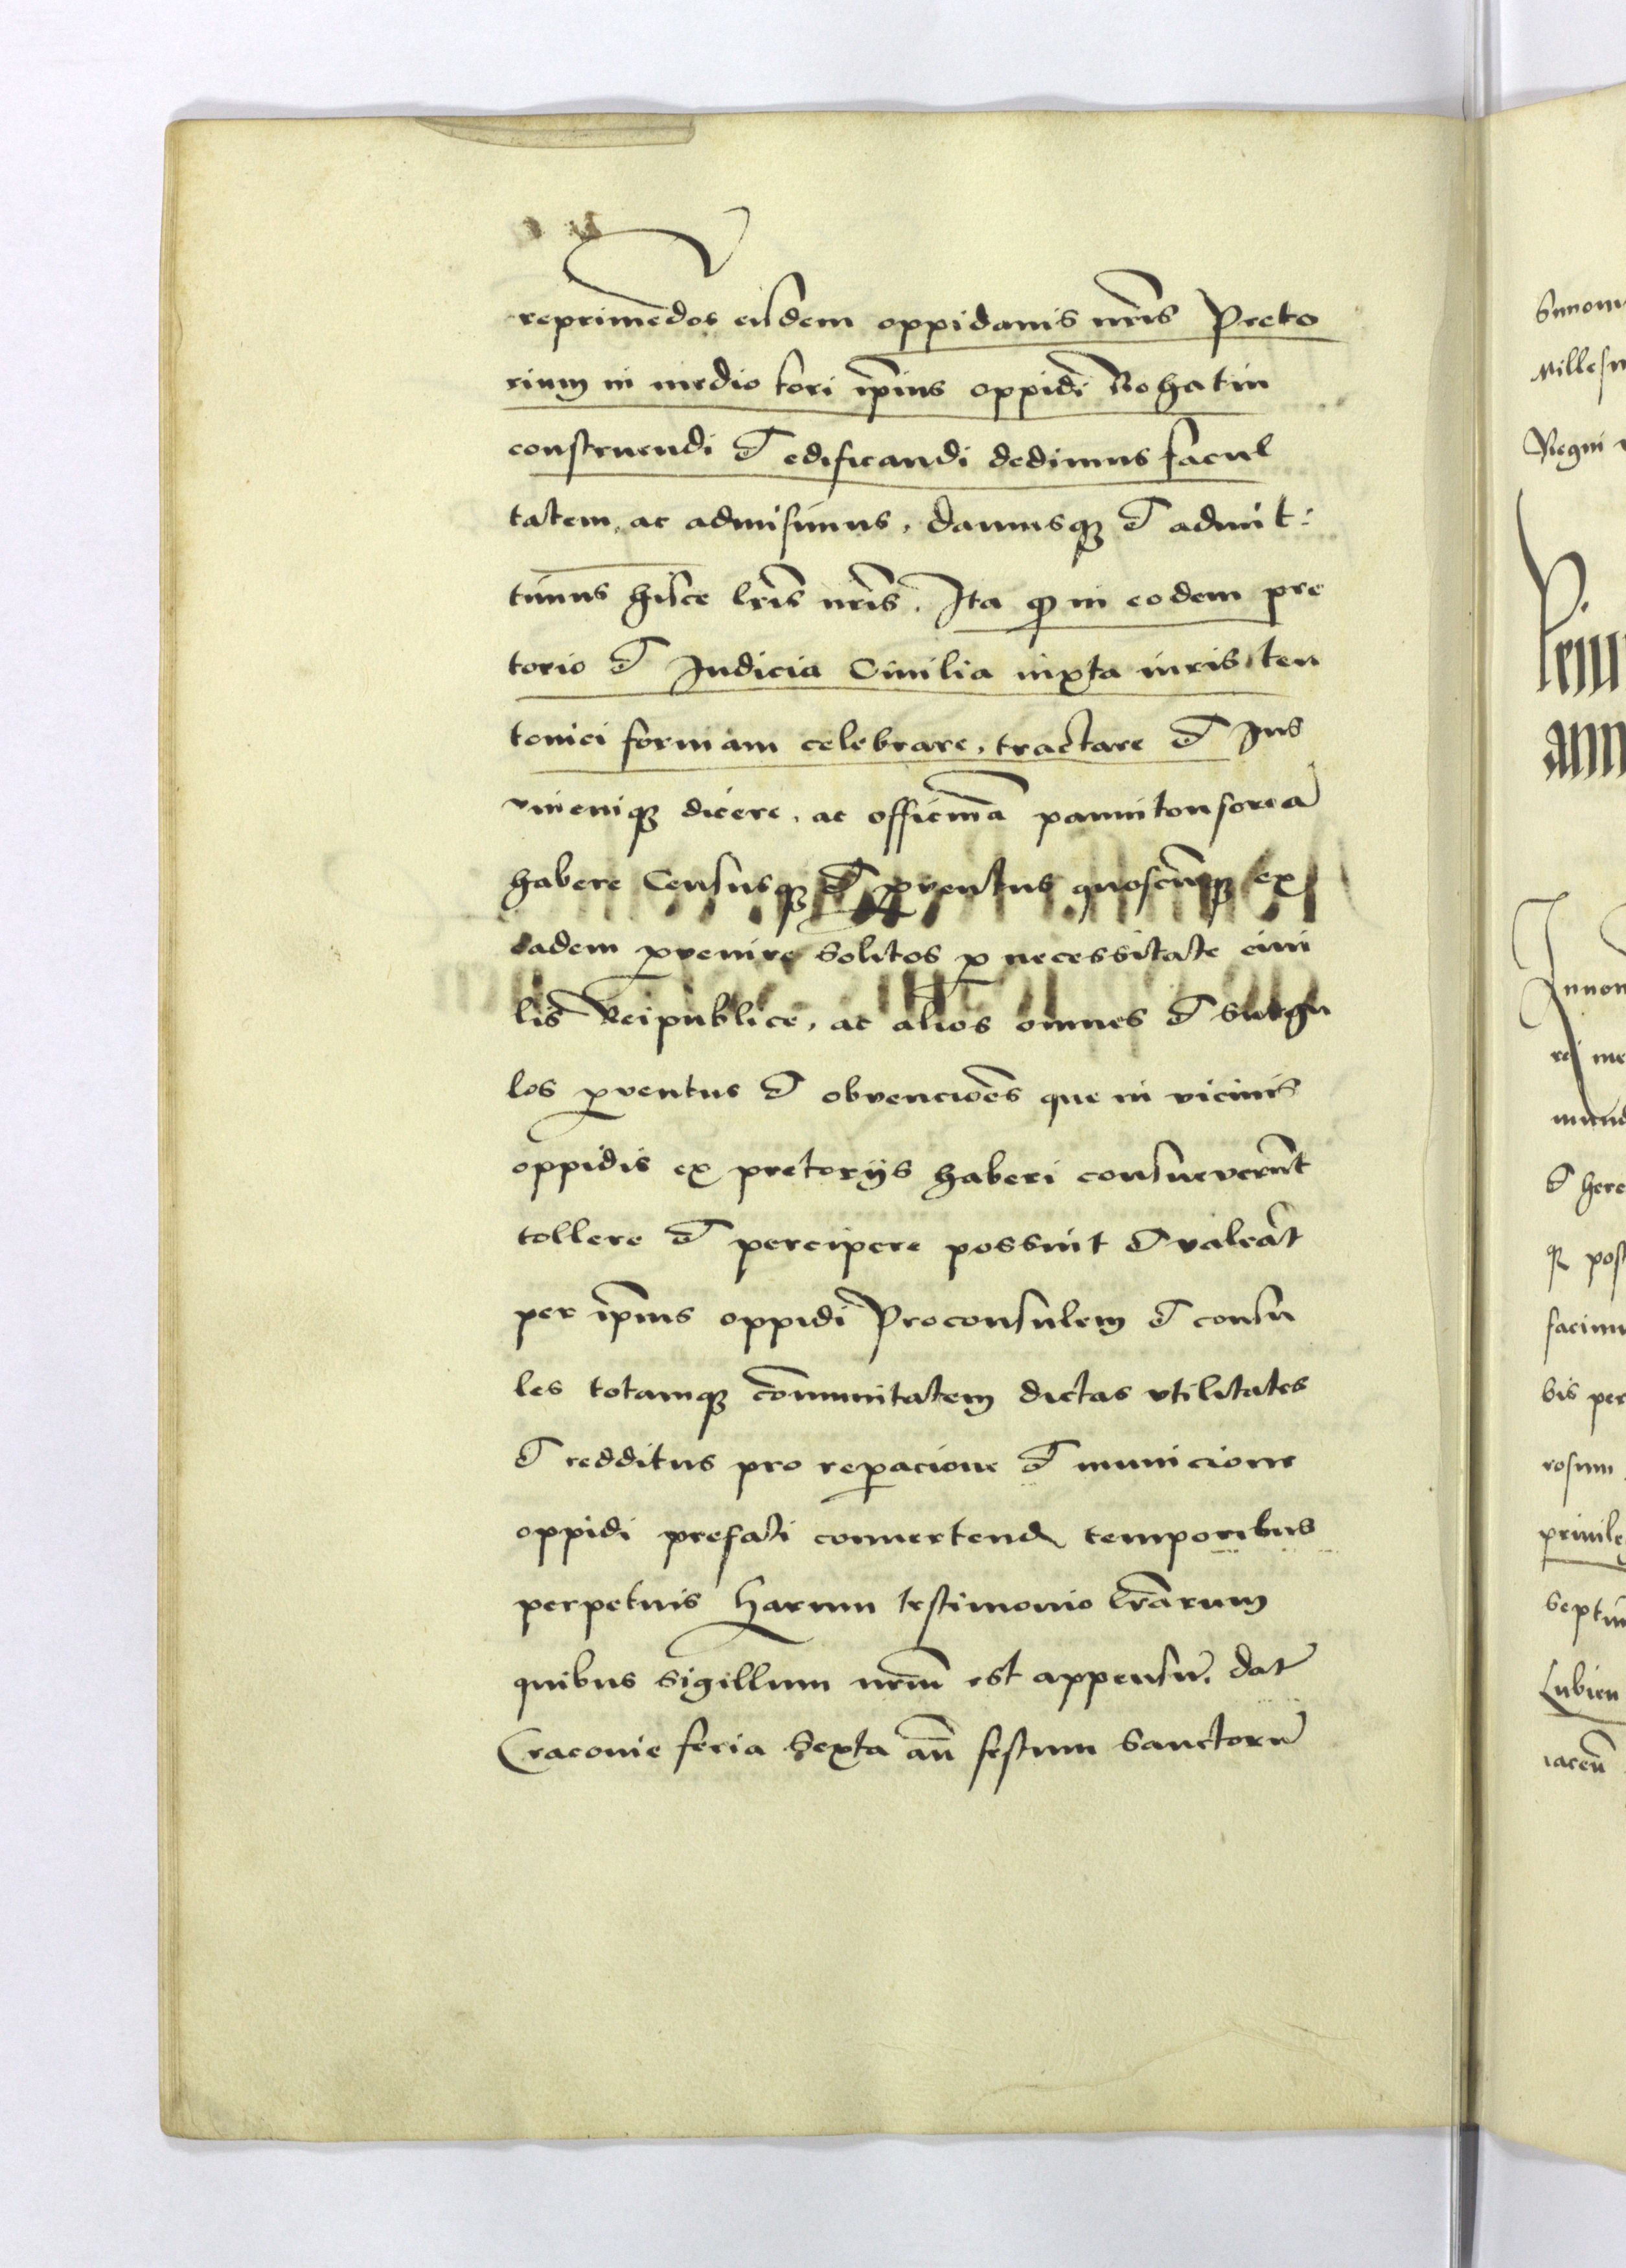 reprimēdos eisdem oppidanis nr̄is Preto
rium in medio fori ip̄ius oppidi Rohatin
construendi et edificandi dedimus facul
tatem, ac admisimus, damusqꝫ et admit:
timus hisce lr̄is nr̄is. Ita ꝙ in eodem pre
torio et Iudicia Ciuilia iuxta iuris teu
tonici formam celebrare, tractare et Ius
vnicuiqꝫ dicere, ac officinā pannitonsoreā
habere Censusqꝫ et ꝓuentus quoscūqꝫ ex
eadem ꝓvenire solitos ꝓ necessitate ciui
lis Reipublice, ac alios omnes et singu
los ꝓventus et obvenciōes que in vicinis
oppidis ex pretorijs haberi consueverūt
tollere et percipere possint et valeāt
per ip̄ius oppidi Proconsulem et consu
les totamqꝫ cōmunitatem dictas vtilitates
et redditus pro reꝑacione et municione
oppidi prefati conuertendꝭ temporibus
perpetuis Harum testimonio lr̄arum
quibus sigillum nr̄m est appensū. Dat̄
Cracovie feria sexta an̄ festum Sanctorū
Regni
facimu
bis per
rosum
priuile
Septim
Lubien